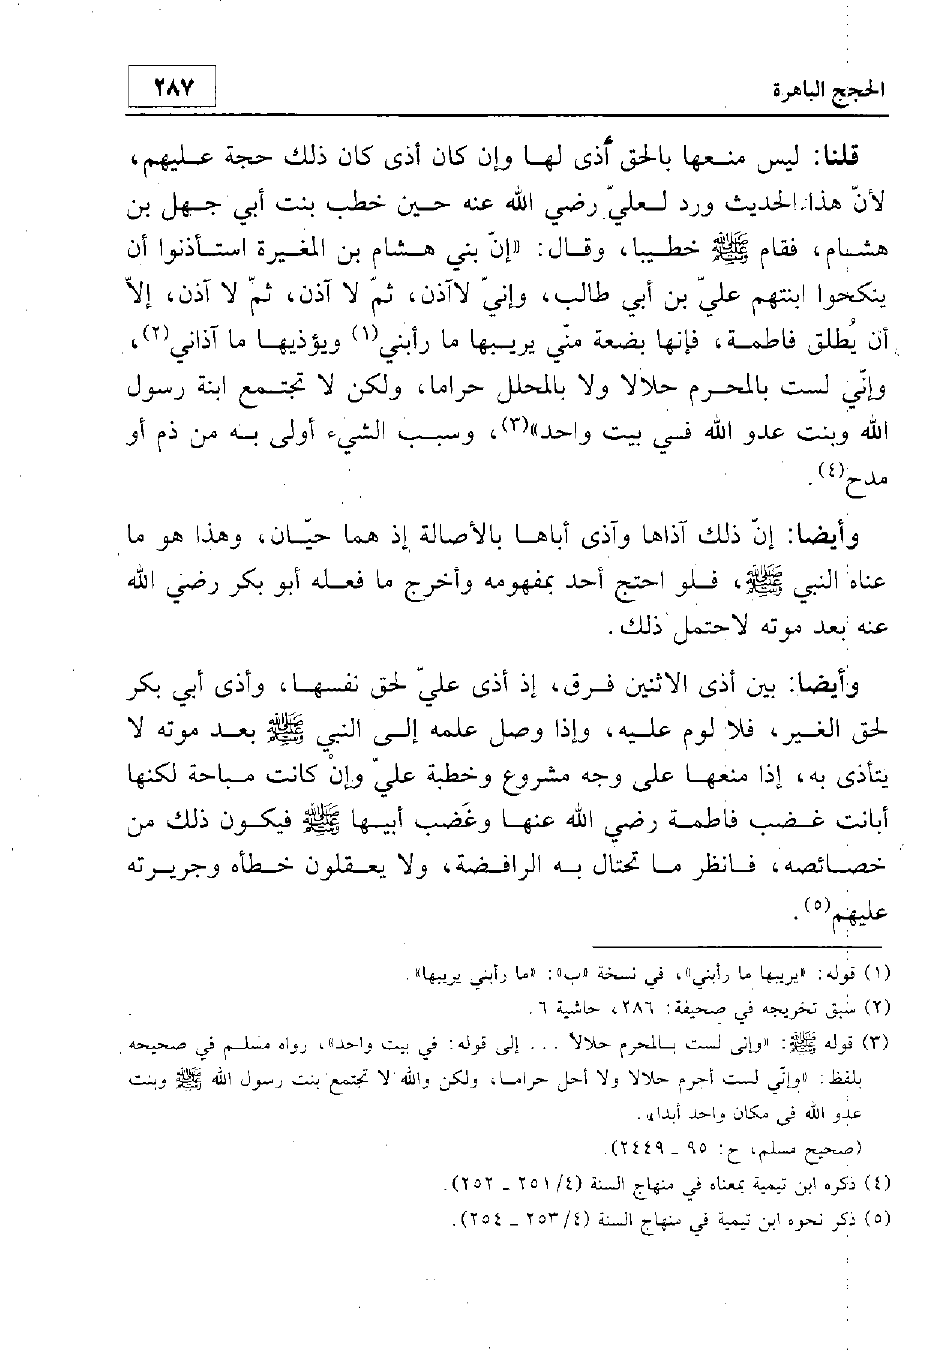 الحجج الباهرة
٢٨٧
قلنا: ليس منعها بالحق أذى لها وإن كان أذى كان ذلك حجة عليهم،
لأنّ هذا الحديث ورد لعليّ رضي الله عنه حين خطب بنت أبي جهل بن
هشام، فقام ﷺ خطيبا، وقال: «إنّ بني هشام بن المغيرة استأذنوا أن
ينكحوا ابنتهم عليّ بن أبي طالب، وإنيّ لاآذن، ثمّ لا آذن، ثمّ لا آذن، إلاّ
أن يُطلق فاطمة، فإنها بضعة منّي يريبها ما رأبني(١) ويؤذيها ما آذاني(٢)،
وإنّي لست بالمحرم حلالا ولا بالمحلل حراما، ولكن لا تجتمع ابنة رسول
الله وبنت عدو الله في بيت واحد»(٣)، وسبب الشيء أولى به من ذم أو
مدح(٤).
وأيضا: إنّ ذلك آذاها وآذى أباها بالأصالة إذ هما حيّان، وهذا هو ما
عناه النبي ﷺ، فلو احتج أحد بمفهومه وأخرج ما فعله أبو بكر رضي الله
عنه بعد موته لاحتمل ذلك.
وأيضا: بين أذى الاثنين فرق، إذ أذى عليّ لحق نفسها، وأذى أبي بكر
لحق الغير، فلا لوم عليه، وإذا وصل علمه إلى النبي ﷺ بعد موته لا
يتأذى به، إذا منعها على وجه مشروع وخطبة عليّ وإن كانت مباحة لكنها
أبانت غضب فاطمة رضي الله عنها وغَضب أبيها ﷺ فيكون ذلك من
خصائصه، فانظر ما تحتال به الرافضة، ولا يعقلون خطأه وجريرته
عليهم(٥).
(١) قوله: «يريبها ما رأبني»، في نسخة «ب»: «ما رأبني يريبها».
(٢) سبق تخريجه في صحيفة: ٢٨٦، حاشية ٦.
(٣) قوله ﷺ: «وإنى لست بالمحرم حلالاً ... إلى قوله: في بيت واحد»، رواه مسلم في صحيحه
بلفظ: «وإنّي لست أحرم حلالا ولا أحل حراما، ولكن والله لا تجتمع بنت رسول الله ﷺ وبنت
عدو الله في مكان واحد أبدا».
(صحيح مسلم، ح: ٩٥ ـ ٢٤٤٩).
(٤) ذكره ابن تيمية بمعناه في منهاج السنة (٤/ ٢٥١ ـ ٢٥٢).
(٥) ذكر نحوه ابن تيمية في منهاج السنة (٤/ ٢٥٣ ـ ٢٥٤).